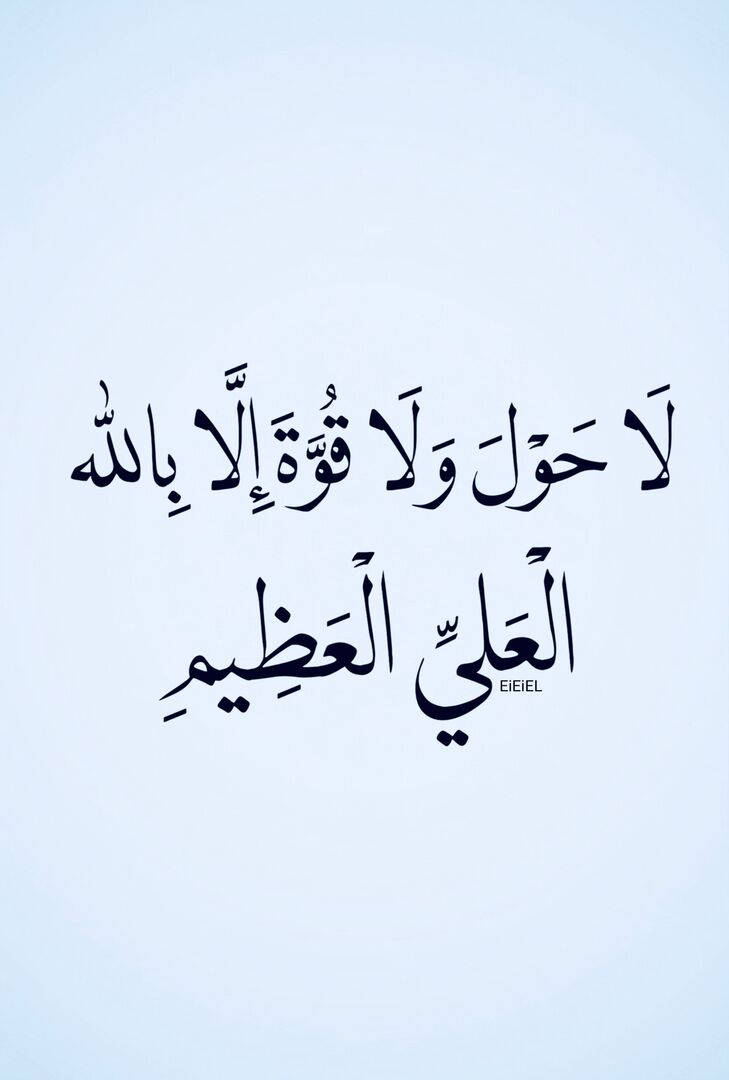 لَا حَوْلَ وَلَا قُوَّةَ إِلَّا بِالله
الْعَليِّ الْعَظِيمِ
EiEiEL